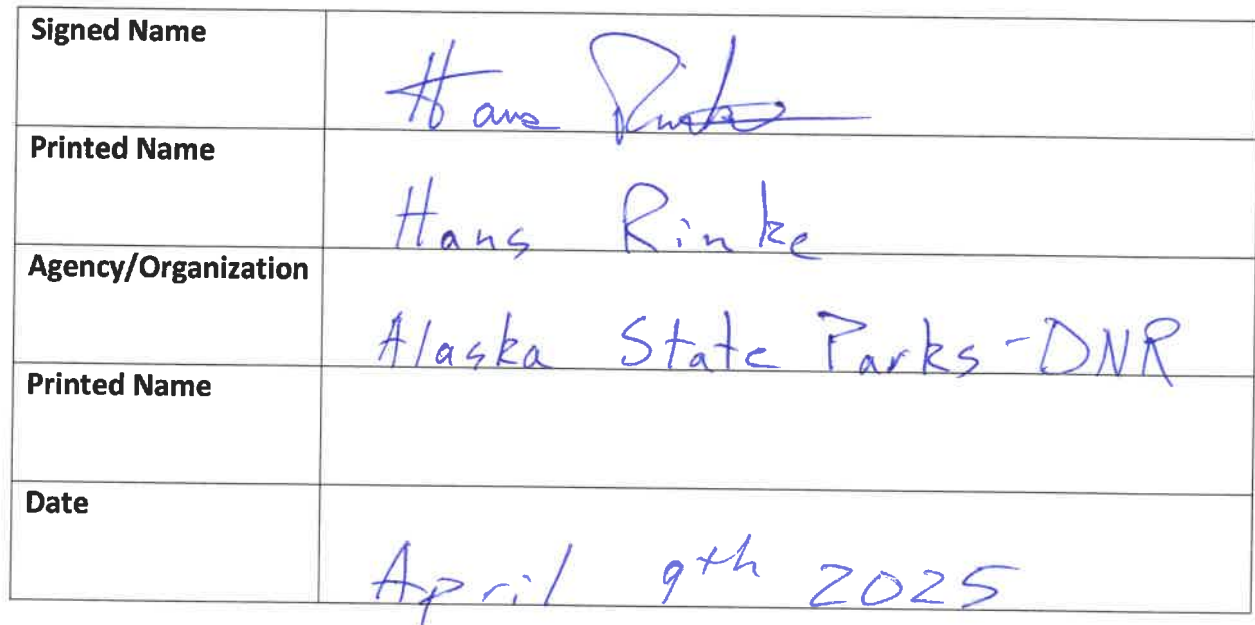 Signed Name
Hans Rinke
Printed Name
Hans Rinke
Agency/Organization
Alaska State Parks-DNR
Printed Name
Date
April 9th 2025